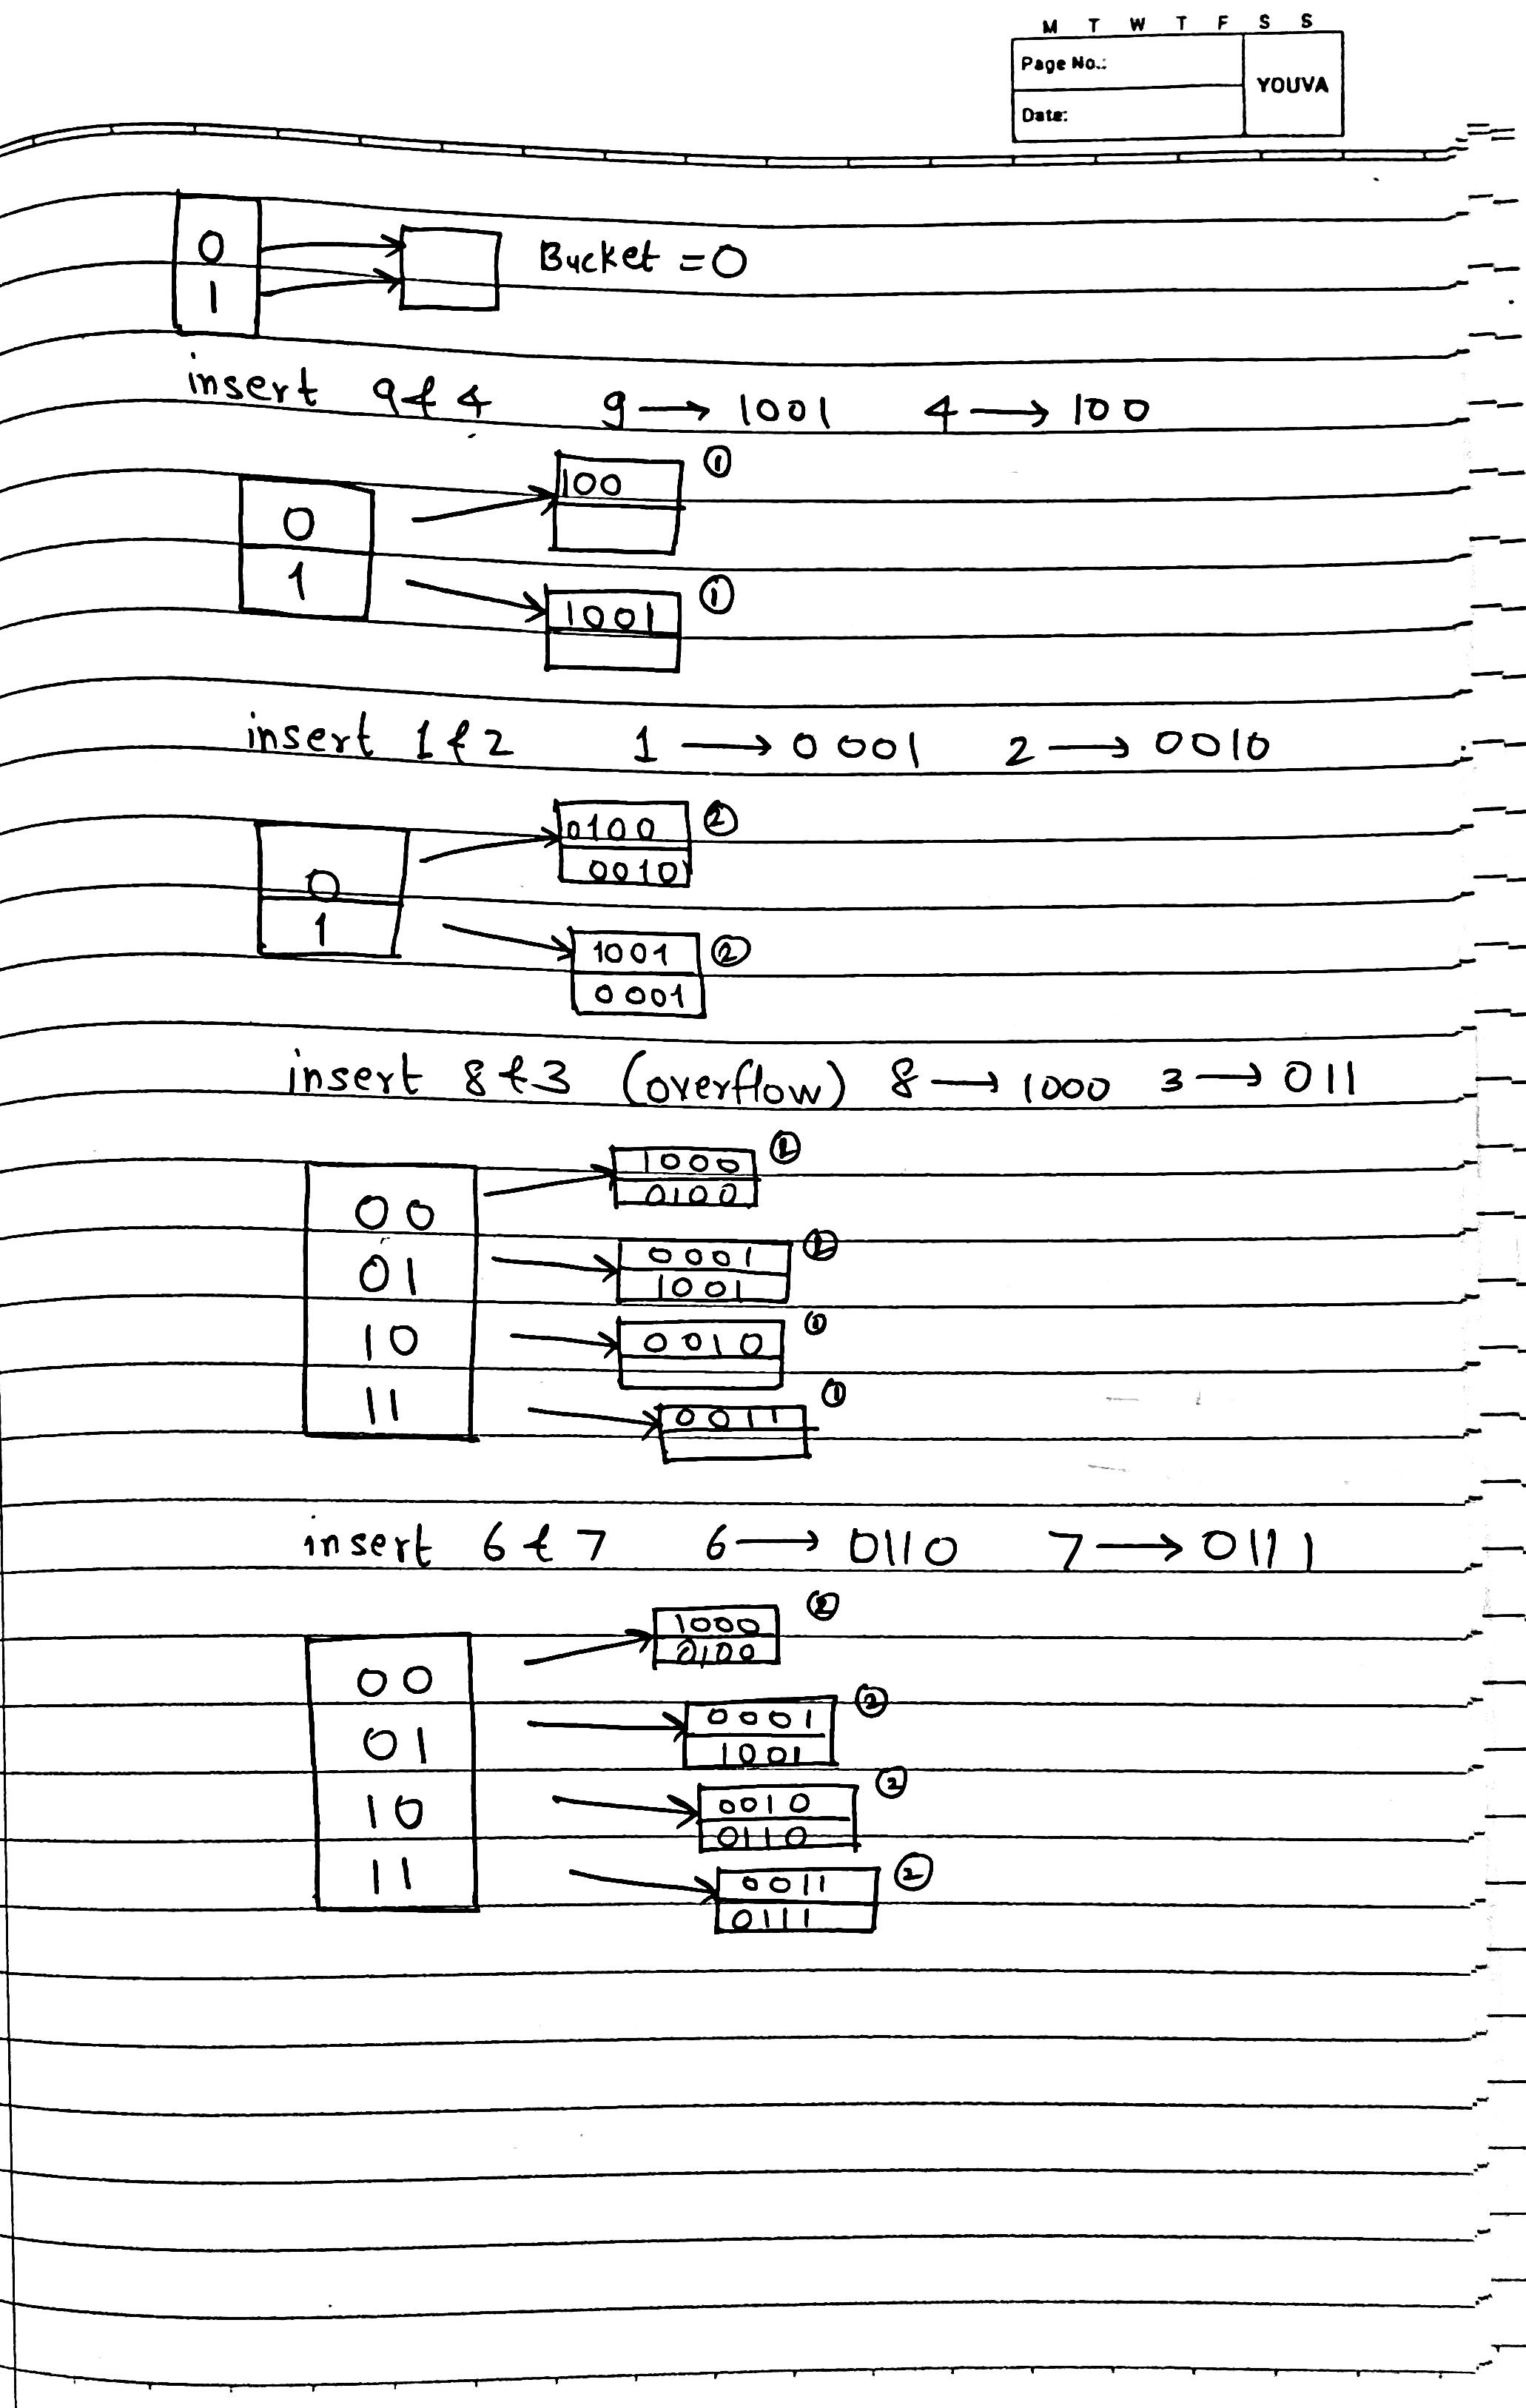 M T W T F S S
Page No.:
YOUVA
Date:
0
1
Bucket = 0
insert 9 & 4 9 → 1001 4 → 100
100 ①
0
1
1001 ①
insert 1 & 2 1 → 0001 2 → 0010
0100 ②
0010
0
1
1001 ②
0001
insert 8 & 3 (overflow) 8 → 1000 3 → 011
1000 ②
0100
00
0001 ②
01
1001
10
0010 ①
11
0011 ①
insert 6 & 7 6 → 0110 7 → 0111
1000 ②
0100
00
0001 ②
01
1001
10
0010 ②
0110
11
0011 ②
0111